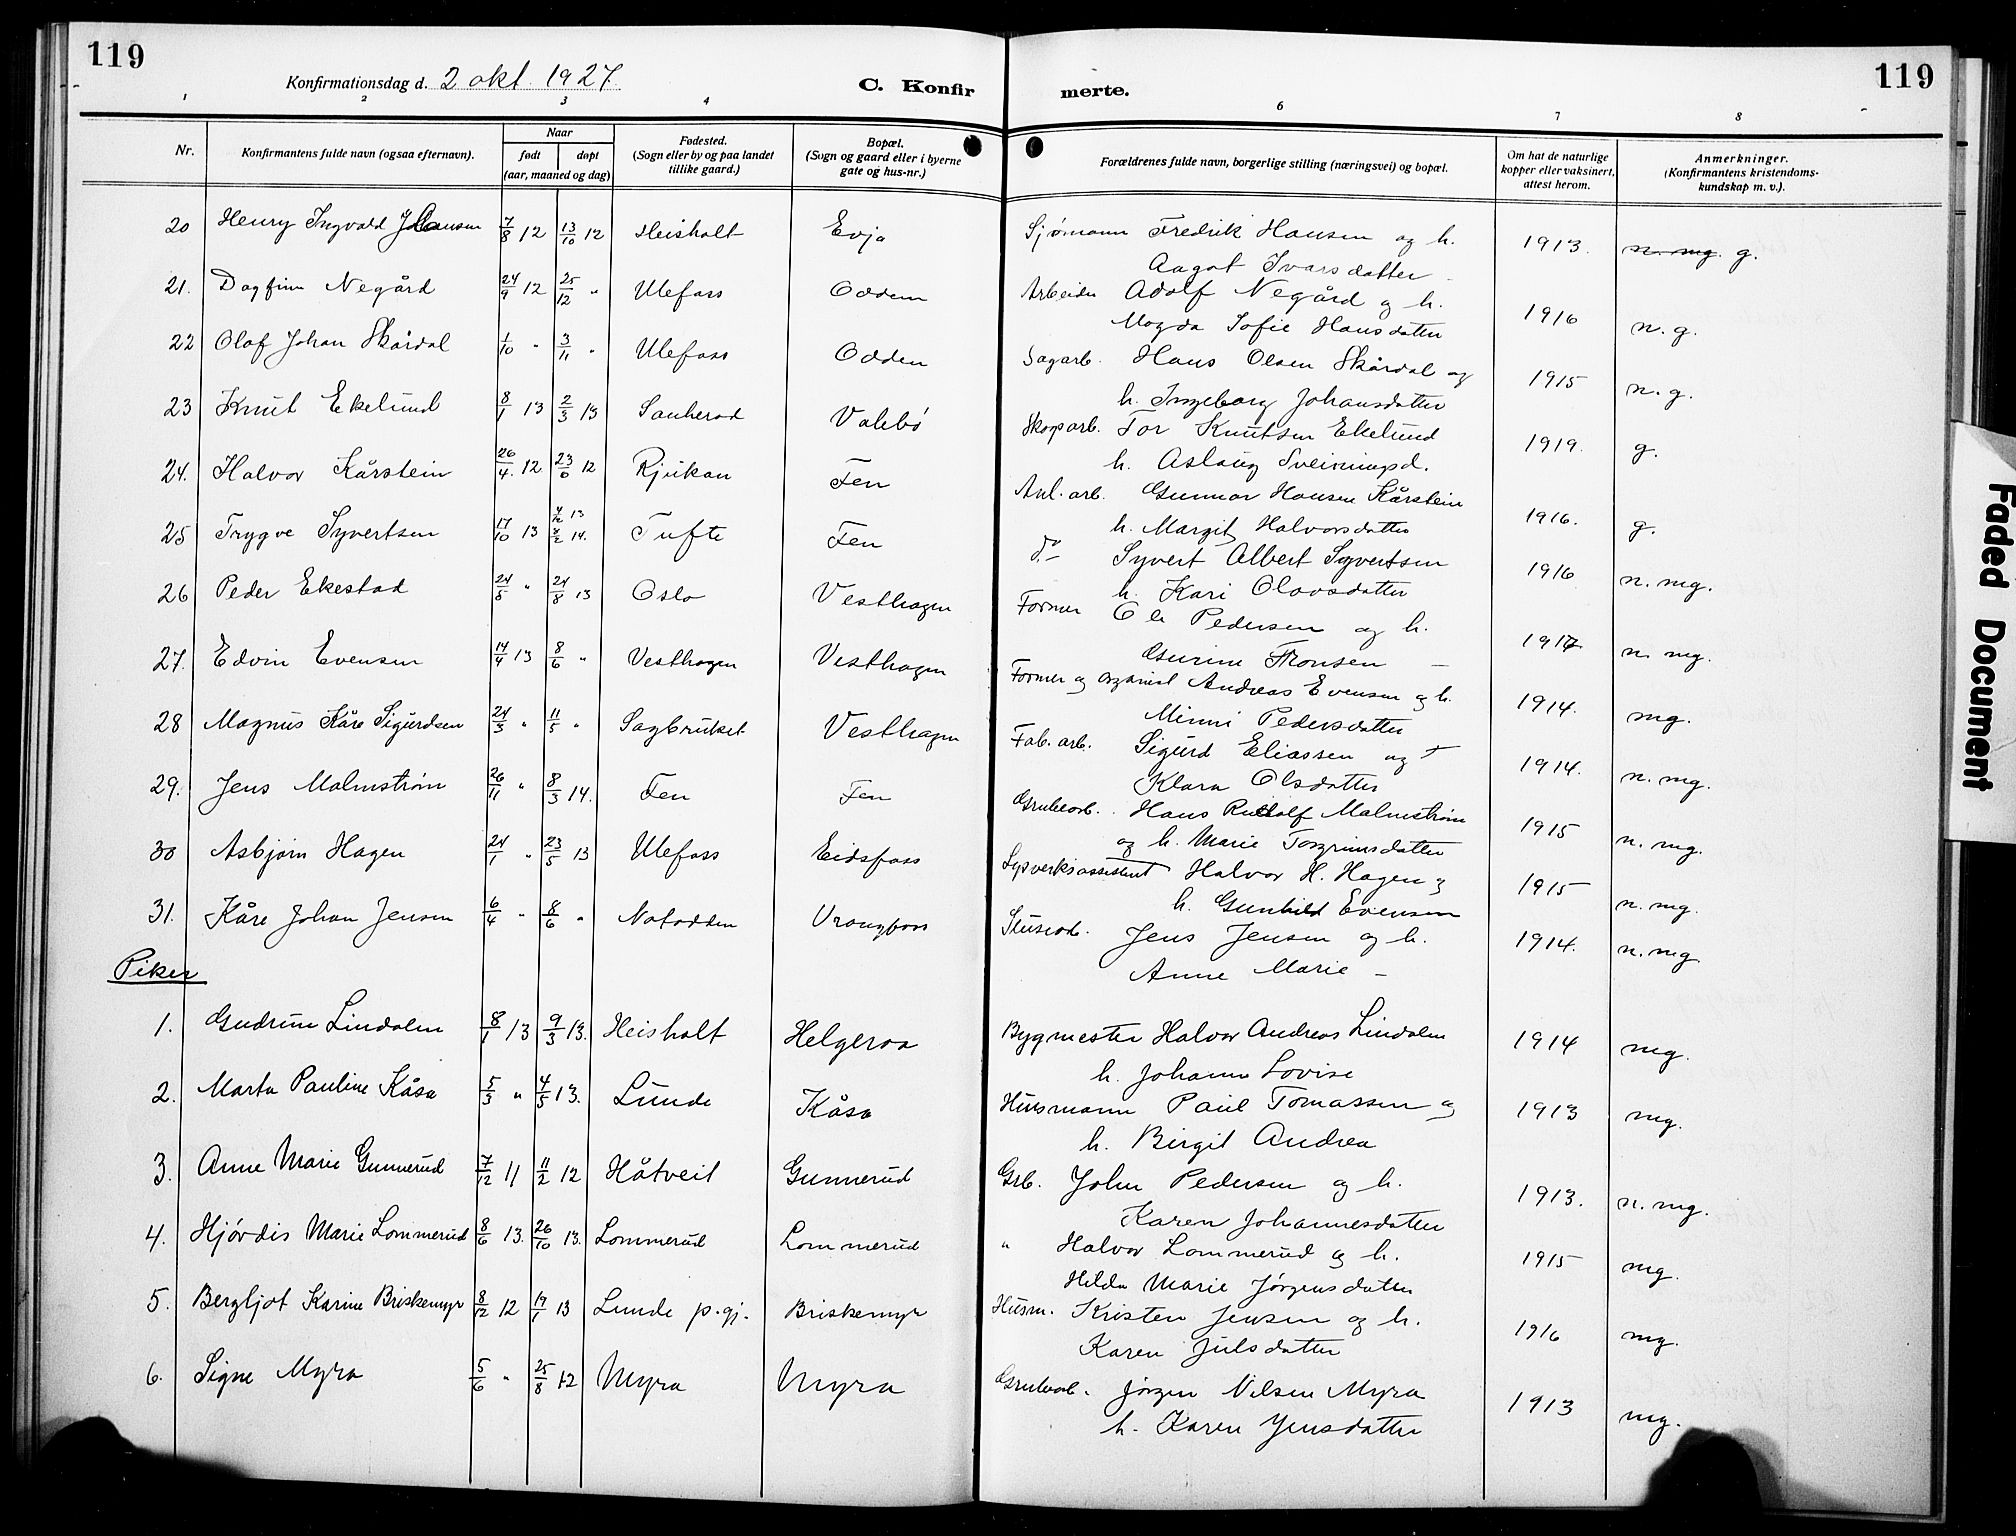 119
Konfirmationsdag d. 2 okt. 1927.
C. Konfir merte.
119
1 2 3 4 6 7 8
Nr.
Konfirmantens fulde navn (ogsaa efternavn).
Naar
født døpt
(aar, maaned og dag)
Fødested.
(Sogn eller by og paa landet
tillike gaard.)
Bopæl.
(Sogn og gaard eller i byerne
gate og hus-nr.)
Forældrenes fulde navn, borgerlige stilling (næringsvei) og bopæl.
Om hat de naturlige
kopper eller vaksinert,
attest herom.
Anmerkninger.
(Konfirmantens kristendoms-
kundskap m. v.).
20 Henry Ingvald Hansen 7/8 12 13/10 12 Heisholt Evja Sjømann Fredrik Hansen og h. 1913. n. mg. g.
Aagot Ivarsdatter
21. Dagfinn Negård 24/9 12 25/12 " Ulefoss Odden Arbeider Adolf Negård og h. 1916 n. g.
Magda Sofie Hansdatter
22 Olaf Johan Skårdal 1/10 " 3/11 " Ulefoss Odden Sagarb. Hans Olsen Skårdal og 1915 n. g.
h. Ingeborg Johansdatter
23 Knut Ekelund 8/1 13 2/3 13 Sauherad Valebø Skogsarb. Tor Knutsen Ekelund 1919. g.
h. Aslaug Sveinungsd.
24. Halvor Kårstein 26/4. 12 23/6 12 Rjukan Fen Anl. arb. Gunnar Hansen Kårstein 1916. g.
h. Margit Halvorsdatter
25 Trygve Syvertsen 17/10 13 14. Tufte Fen do Syvert Albert Syvertsen 1916 n. mg.
h. Kari Olavsdatter
26 Peder Ekestad 24/5 " 24/8 13 Oslo Vesthagen Former Ole Pedersen og h. 1917 n. mg.
Gurine Tronsen
27. Edvin Evensen 14/4 13 8/6 " Vesthagen Vesthagen Former og organist Andreas Evensen og h. 1914. mg.
Minni Pedersdatter
28 Magnus Kåre Sigurdsen 24/3 " 11/5 " Sagbruket Vesthagen Fab. arb. Sigurd Eliassen og † 1914. n. mg.
Klara Olsdatter
29. Jens Malmstrøm 26/11 " 8/3 14. Fen Fen Grubearb. Hans Rudolf Malmstrøm 1915 n. mg.
og h. Marie Torgrimsdatter
30 Asbjørn Hagen 24/1 " 23/5 13 Ulefoss Eidsfoss Lysverksassistent Halvor H. Hagen og 1915 n. mg.
h. Gunhild Evensen
31. Kåre Johan Jensen 6/4 " 8/6 " Notodden Vrangfoss Slusearb. Jens Jensen og h. 1914. n. mg
Anne Marie –
Piker
1. Gudrun Lindalen 8/1 13 9/3 13. Heisholt Helgeroa Bygmester Halvor Andreas Lindalen 1914 mg.
h. Johanne Lovise
2. Marta Pauline Kåsa 5/3 " 4/5 13. Lunde Kåsa Husmann Paul Tomassen og 1913 mg.
h. Birgit Andrea
3. Anne Marie Gunnerud 7/12 11 11/2 12 Håtveit Gunnerud Grb. John Pedersen og h. 1913. n. mg.
Karen Johannesdatter
4. Hjørdis Marie Lommerud 8/6 13. 26/10 13. Lommerud Lommerud " Halvor Lommerud og h. 1915 mg.
Hilda Marie Jørgensdatter
5. Bergljot Karine Briskemyr 8/12 12 19/1 13 Lunde p.gj. Briskemyr Husm. Kristen Jensen og h. 1916 mg.
Karen Julsdatter
6. Signe Myra 5/6 " 25/8 12 Myra Myra Grubearb. Jørgen Nilsen Myra 1913 mg.
h. Karen Jensdatter
Faded Document